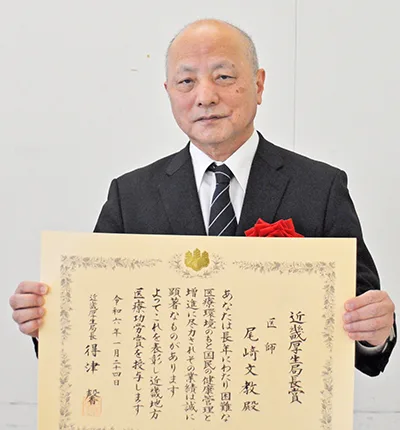 近畿厚生局長賞
医師
尾﨑文教殿
あなたは長年にわたり困難な
医療環境のもと国民の健康管理と
増進に尽力されその業績は誠に
顕著なものがあります
よってこれを表彰し近畿地方
医療功労賞を授与します
令和六年一月二十四日
近畿厚生局長 得津馨